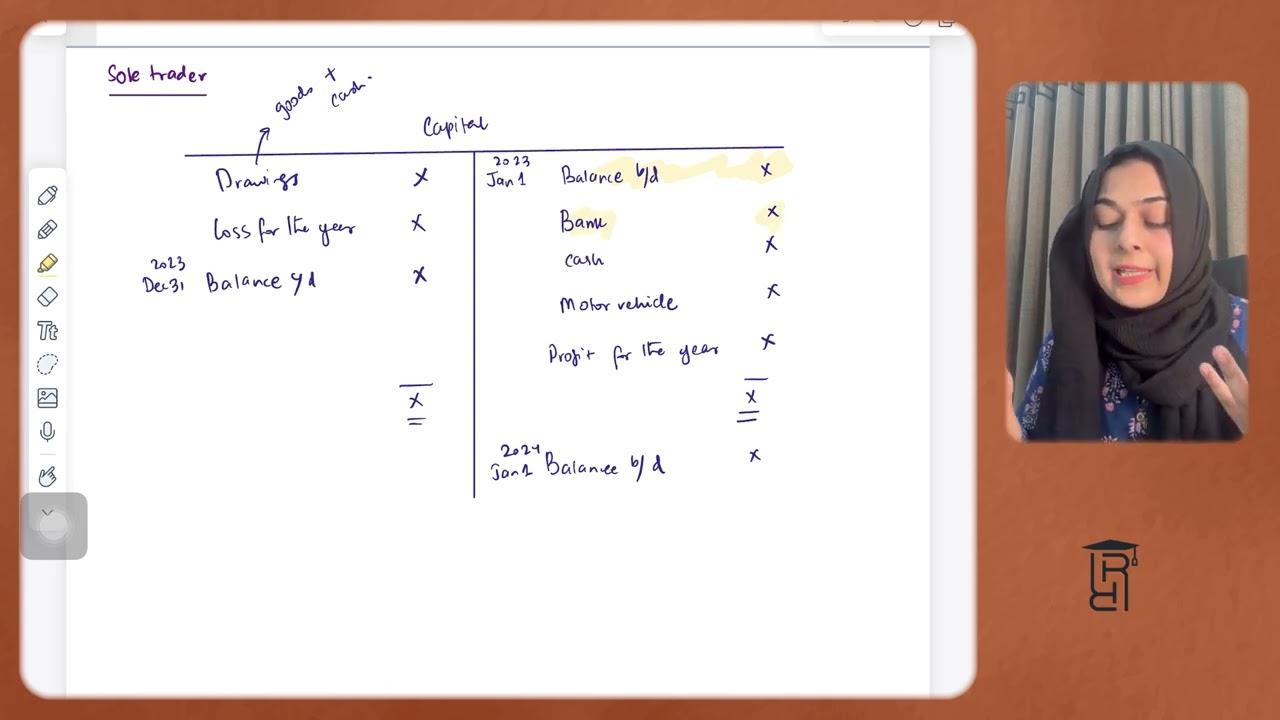 Sole trader
goods +
cash.
Capital
Drawings X
Loss for the year X
2023
Dec 31 Balance c/d X
X
2023
Jan 1 Balance b/d X
Bank X
cash X
Motor vehicle X
Profit for the year X
X
2024
Jan 1 Balance b/d X
Tt